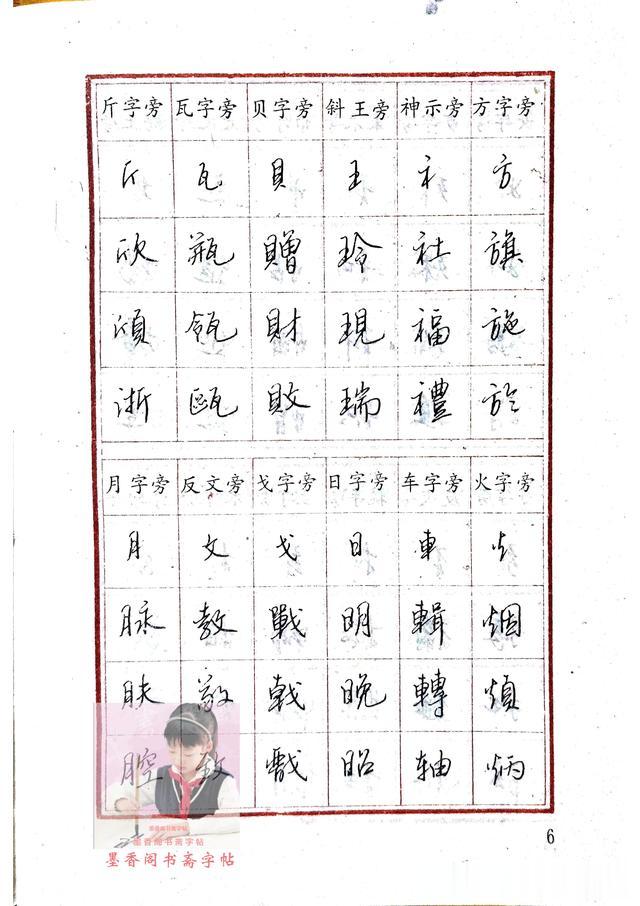 斤字旁 瓦字旁 贝字旁 斜王旁 神示旁 方字旁
斤 瓦 貝 王 礻 方
欣 瓶 贈 玲 社 旗
頎 瓴 財 現 福 施
浙 甌 敗 瑞 禮 於
月字旁 反文旁 戈字旁 日字旁 车字旁 火字旁
月 攵 戈 日 車 火
脉 敖 戰 明 輯 烟
肤 敬 戟 晚 轉 煩
腔 敘 戲 昭 轴 炳
墨香阁书斋字帖
墨香阁书斋字帖
墨香阁书斋字帖
6